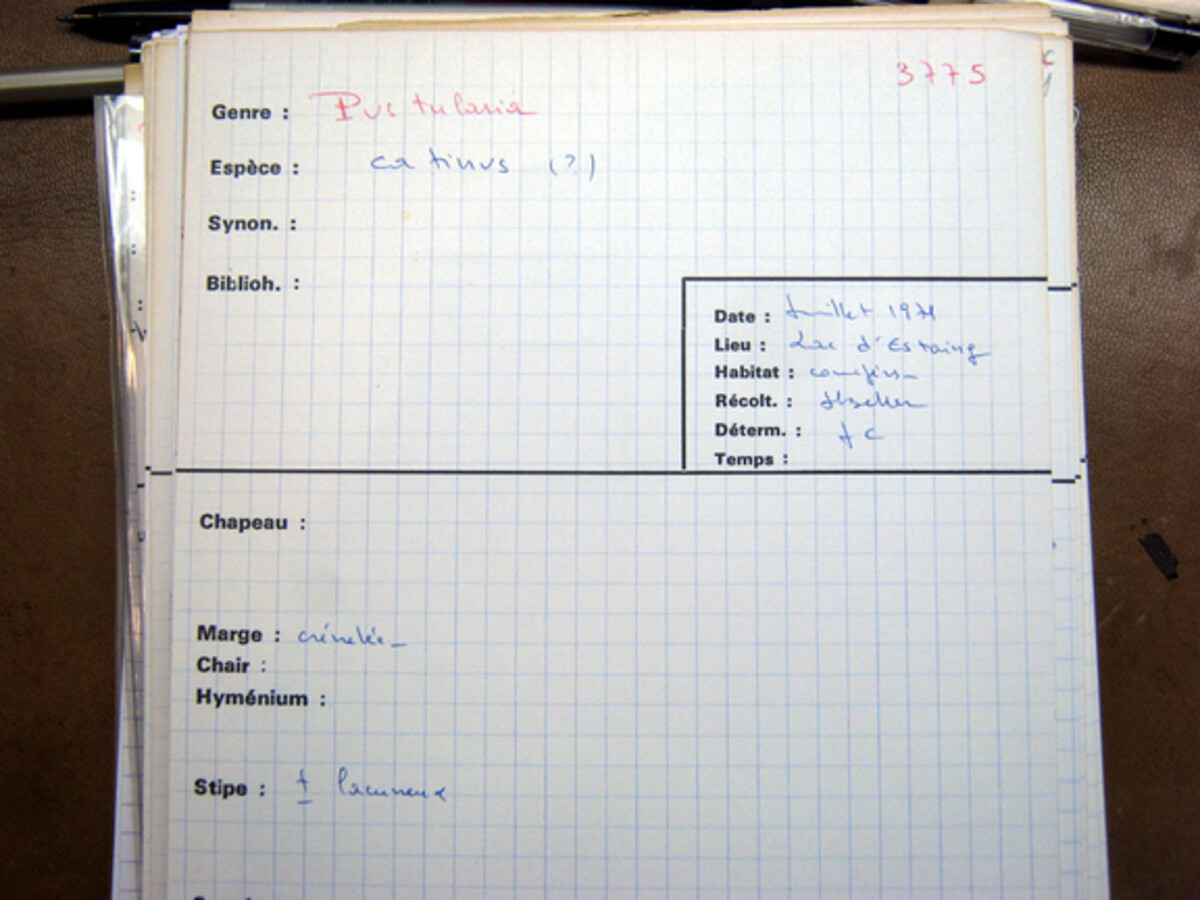 3775
Genre : Pustularia
Espèce : catinus (?)
Synon. :
Biblioh. :
Date : Juillet 1971
Lieu : Lac d'Estaing
Habitat : conifères
Récolt. :
Déterm. : J C
Temps :
Chapeau :
Marge : crénelée
Chair :
Hyménium :
Stipe : ± lacuneux